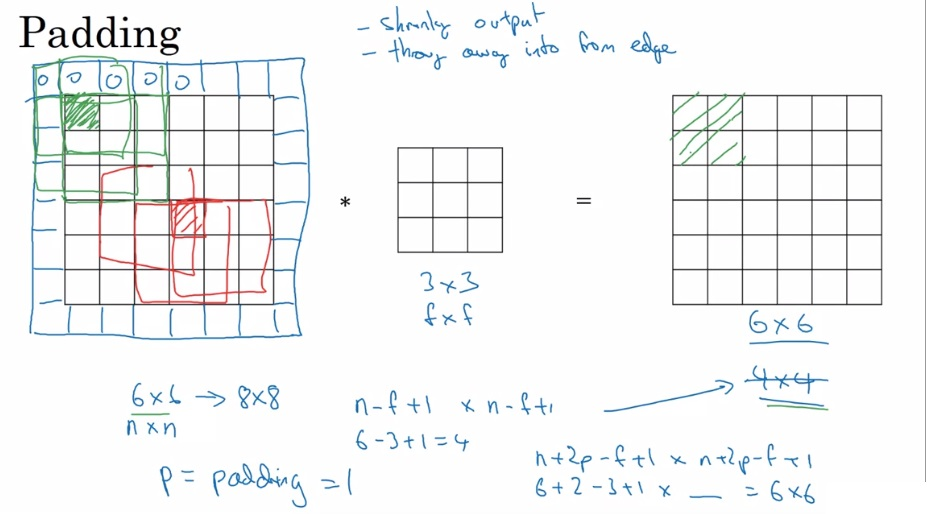 Padding
- shrinky output
- throw away info from edge
0 0 0 0 0
* =
3×3
f×f
6×6
6×6 → 8×8
n×n
n-f+1 × n-f+1
4×4
6-3+1=4
p = padding = 1
n+2p-f+1 × n+2p-f+1
6+2-3+1 × __ = 6×6